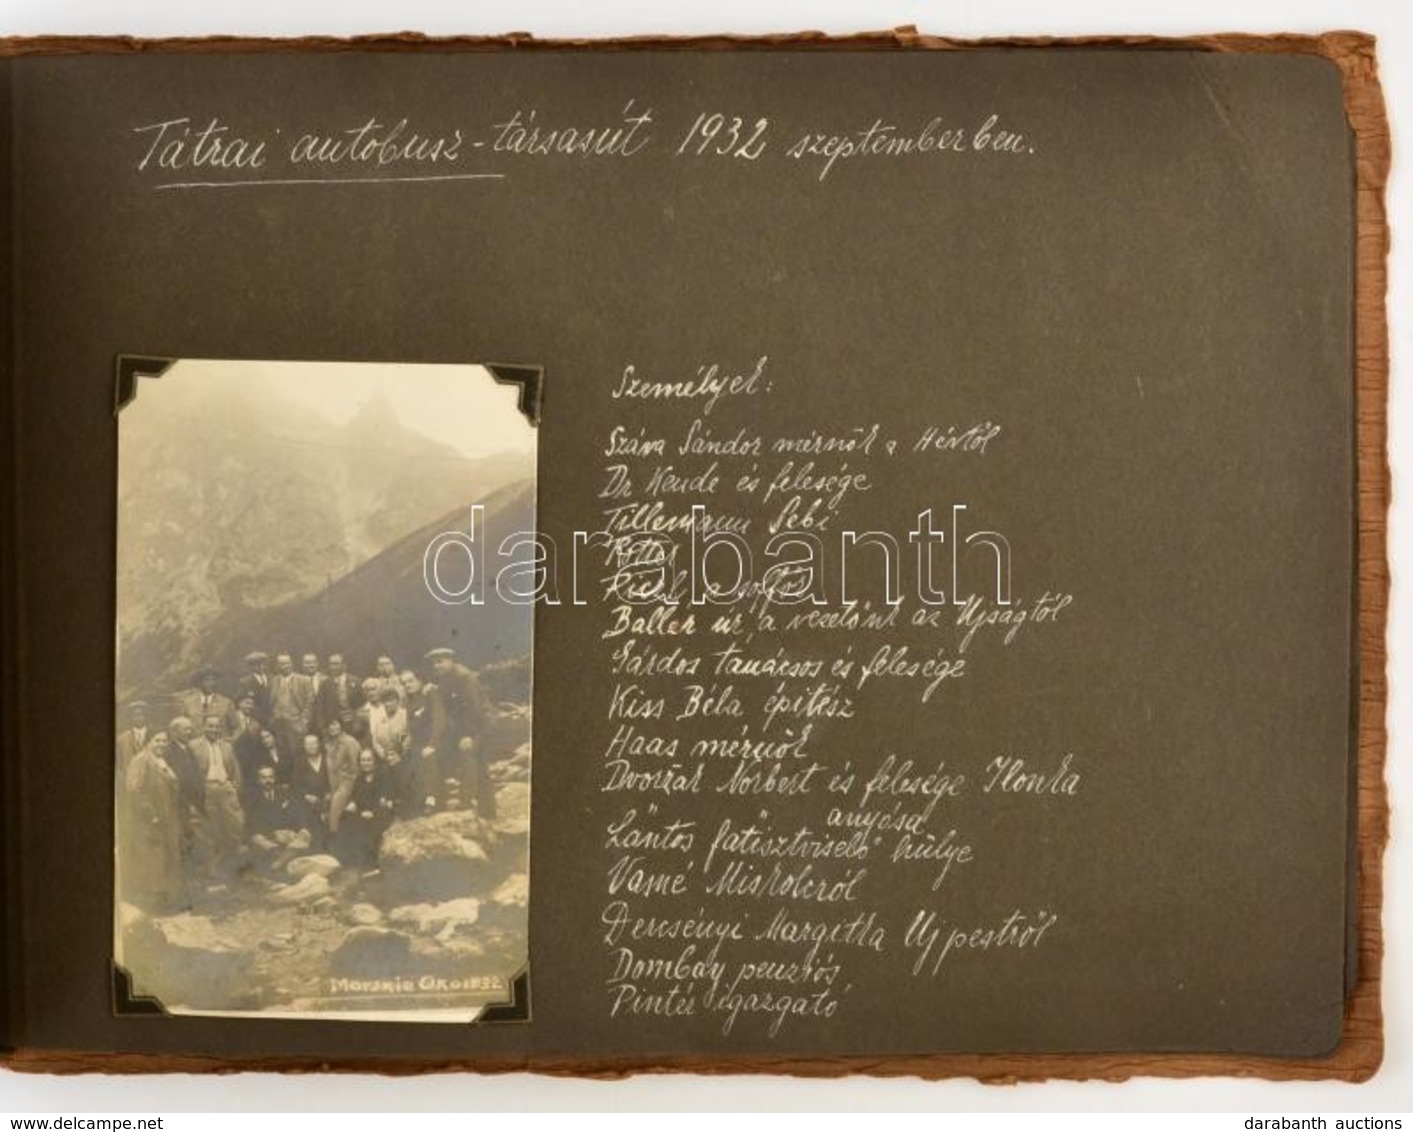 Tátrai autobusz-társasút 1932 szeptemberben.
Személyek:
Száva Sándor mérnök a Hévtől
Dr Kende és felesége
Tillemann Sebi
Rotter
a soffőr
Ballér úr, a vezetőnk az Ujságtól
Gárdos tanácsos és felesége
Kiss Béla épitész
Haas mérnök
Dvorzák Norbert és felesége Ilonka
anyósa
Lántos főtisztviselő hülye
Vasné Miskolcról
Dercsényi Margitka Ujpestről
Dombay penziós
Pintér igazgató
Morskie Oko 1932
darabanth
darabanth auctions